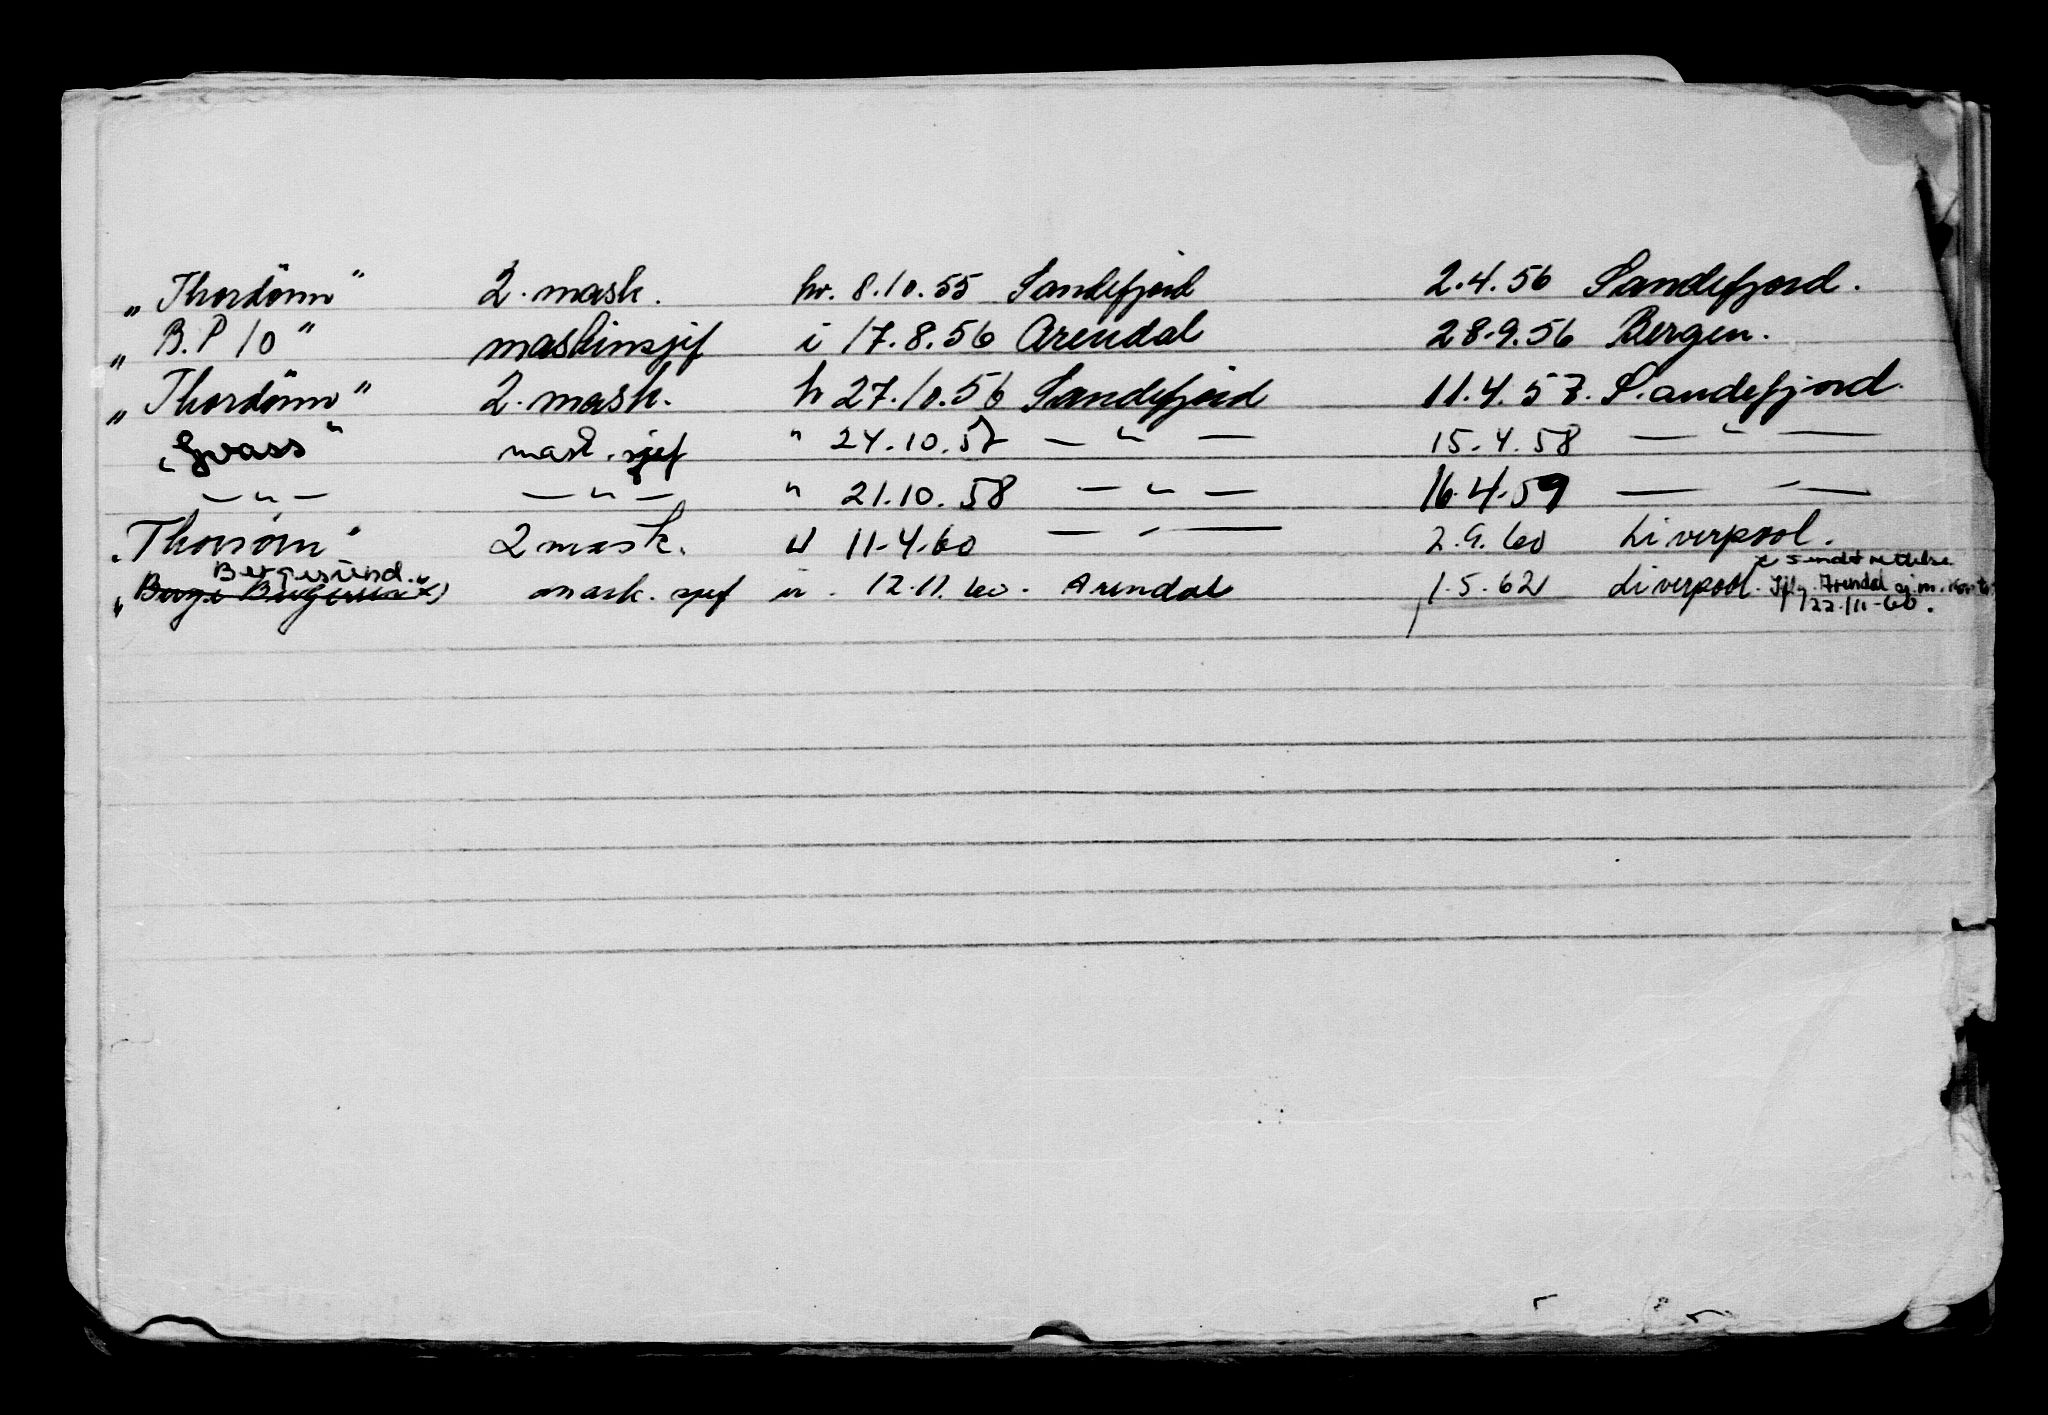 „Thordønn" 2. mask. hv. 8.10.55 Sandefjord 2.4.56 Sandefjord.
„B.P 10" maskinsjef i 17.8.56 Arendal 28.9.56 Bergen.
„Thordønn" 2. mask. h 27.10.56 Sandefjord 11.4.57. Sandefjord.
„Gvass" mask. sjef " 24.10.57 — " — 15.4.58 — " —
— " — — " — " 21.10.58 — " — 16.4.59 — " —
„Thorsørn" 2 mask. u 11-4-60 — " — 2.9.60 Liverpool.
Bergesund." x sendt rettelse
„Berge Bergesen" x) mask. sjef u. 12.11.60. Arendal 1.5.62 Liverpool. Ifлg. Arendal sj.m.kontor
22/11-60.